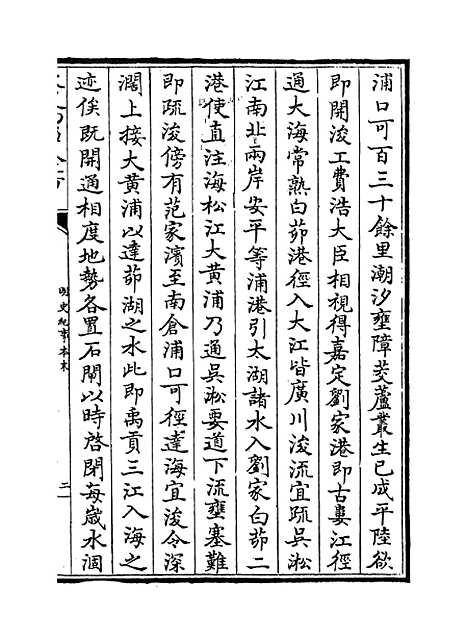 浦口可百三十餘里潮汐壅障茭蘆叢生已成平陸欲
即開浚工費浩大臣相視得嘉定劉家港即古婁江徑
通大海常熟白茆港徑入大江皆廣川浚流宜疏吳淞
江南北兩岸安平等浦港引太湖諸水入劉家白茆二
港使直注海松江大黃浦乃通吳淞要道下流壅塞難
即疏浚傍有范家濱至南倉浦口可徑達海宜浚令深
濶上接大黃浦以達茆湖之水此即禹貢三江入海之
迹俟既開通相度地勢各置石閘以時啓閉每歲水涸
明史紀事本末
二